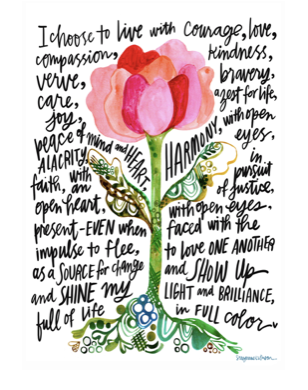 I choose to live with Courage, love,
compassion, kindness,
verve, bravery,
care, a zest for life,
joy, with open
peace of mind and HEART, HARMONY, eyes,
ALACRITY, in
faith, with an pursuit of justice,
open heart, with open eyes.
present-EVEN when faced with the
impulse to flee, to love ONE ANOTHER
as a SOURCE for change and SHOW UP
and SHINE my LIGHT and BRILLIANCE,
full of life in FULL color